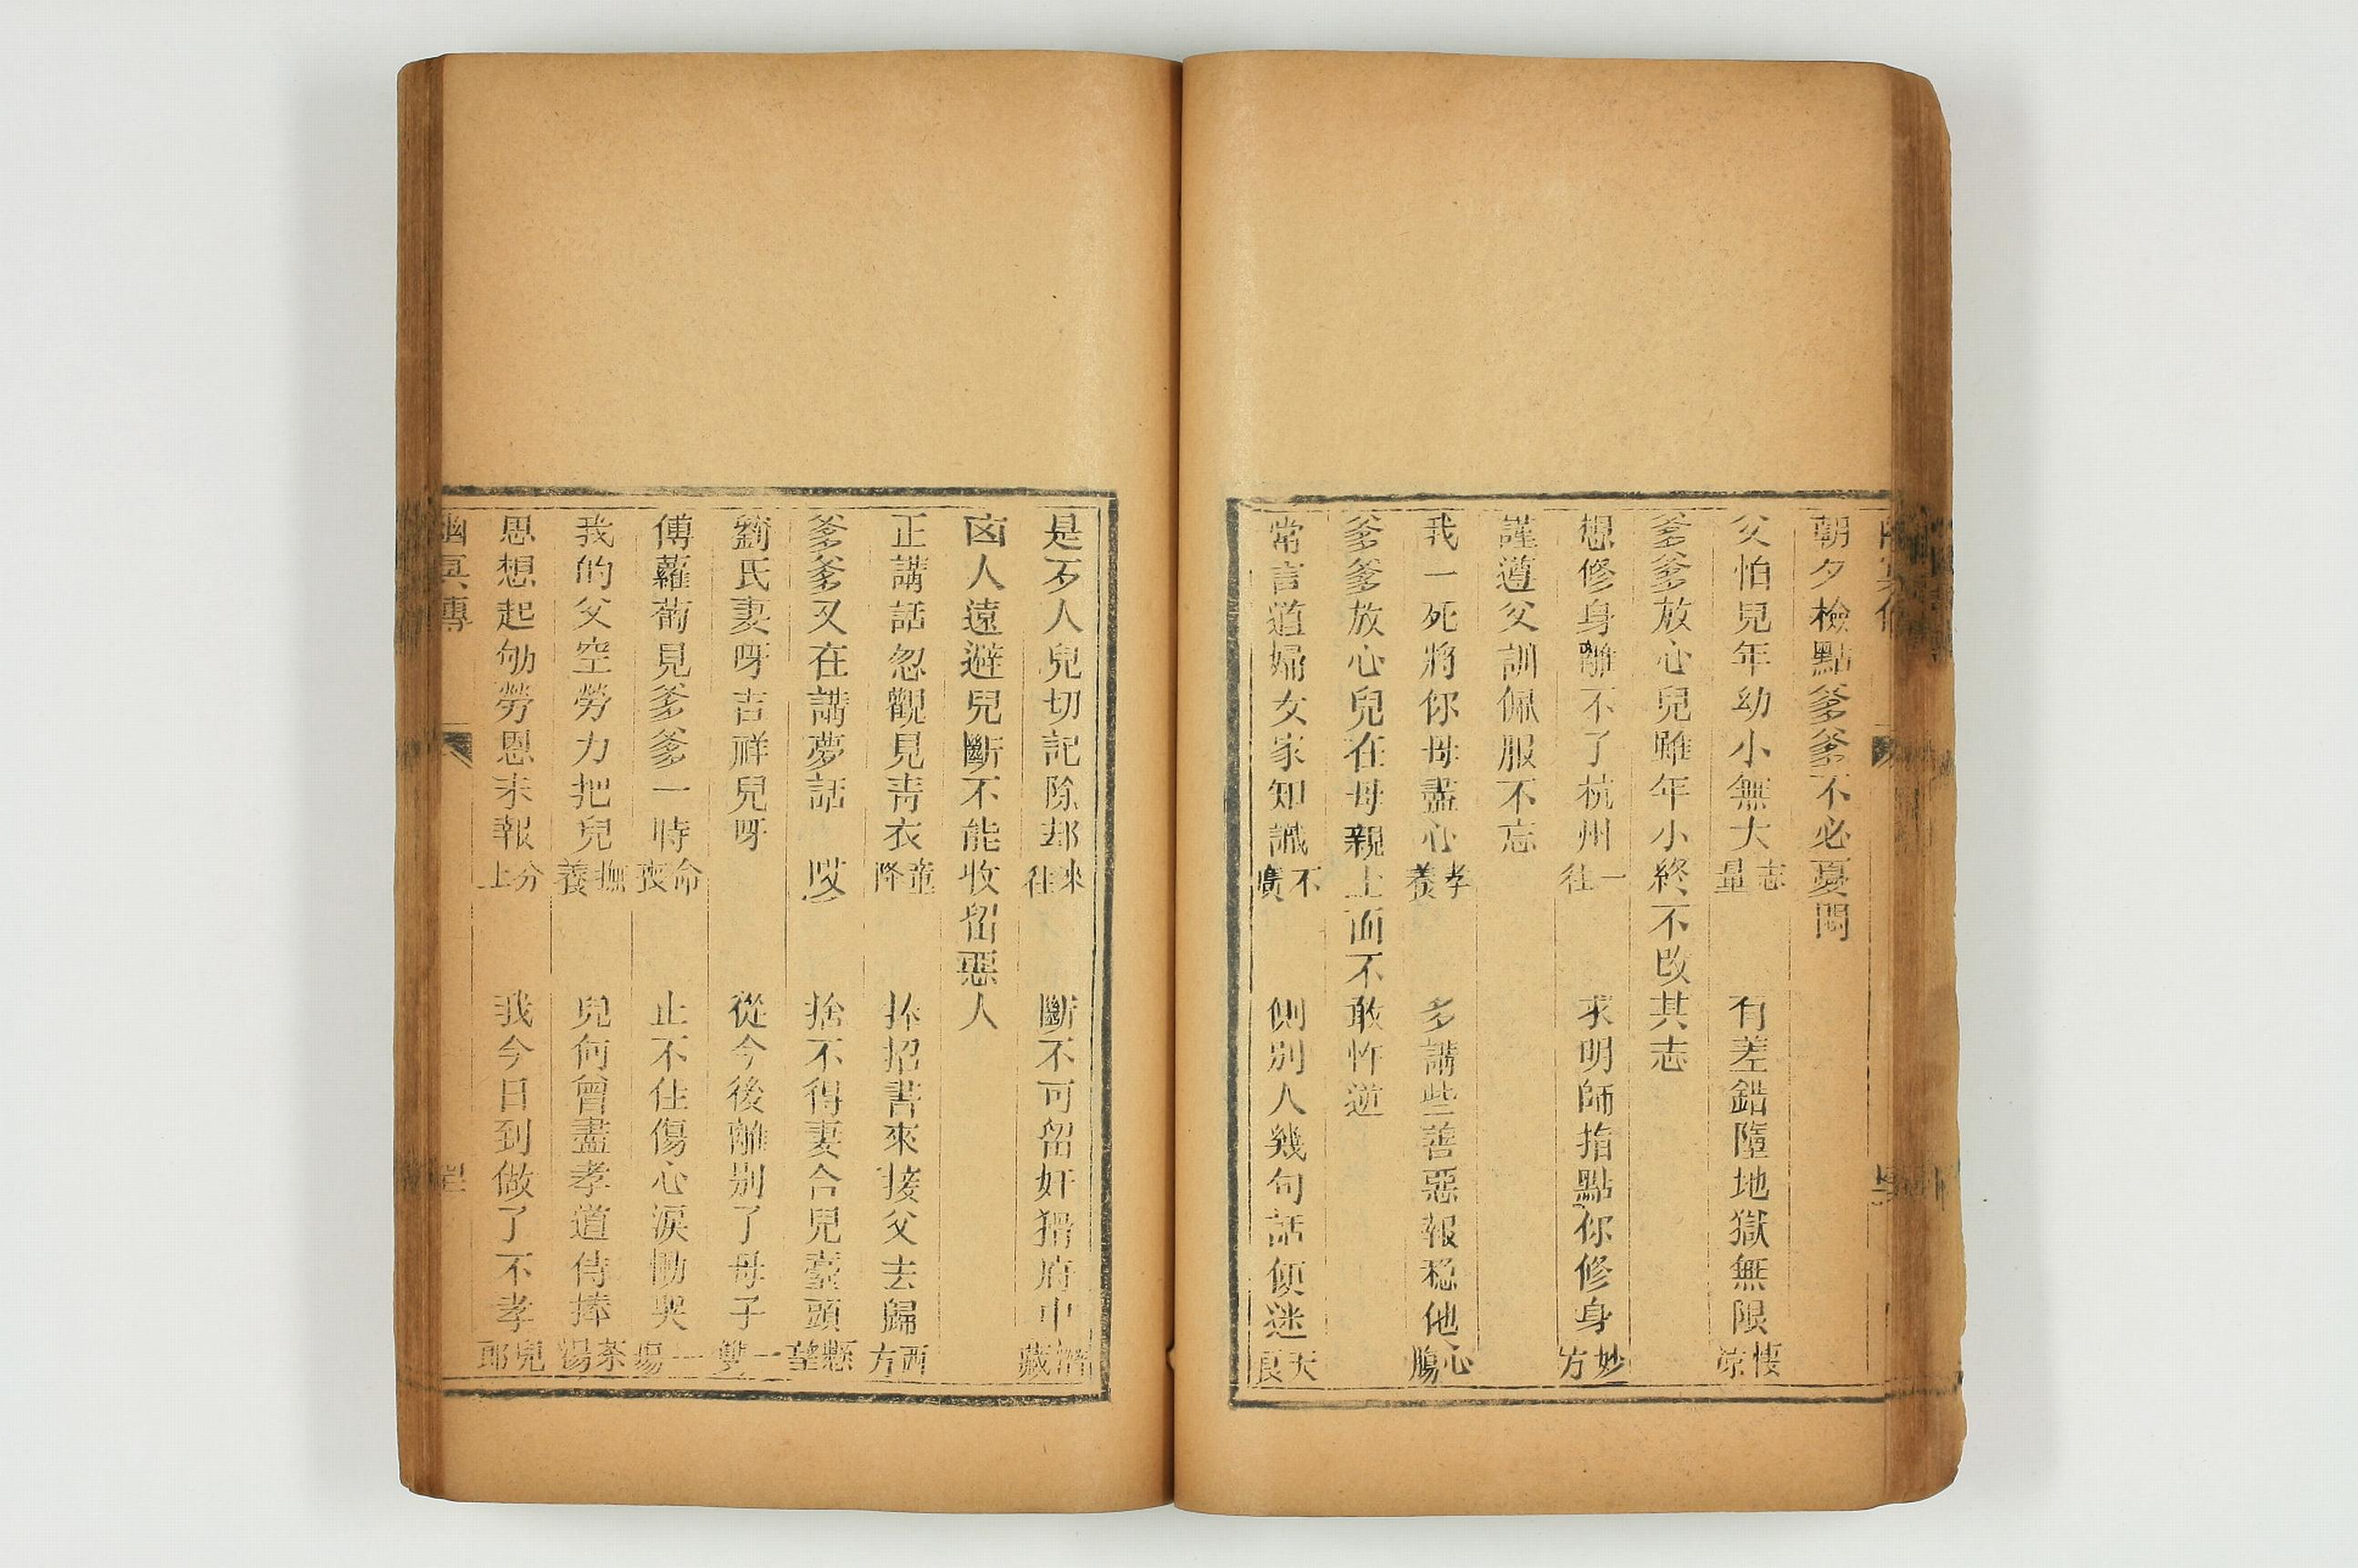 朝夕檢點爹爹不必憂悶
父怕兒年幼小無大志量 有差錯墮地獄無限悽凉
爹爹放心兒雖年小終不改其志
想修身離不了杭州一往 求明師指點你修身妙方
謹遵父訓佩服不忘
我一死將你母盡心孝養 多講些善惡報穏他心腸
爹爹放心兒在母親上面不敢忤逆
常言道婦女家知識不廣 側别人幾句話便迷天良
是歹人兒切記除却來往 斷不可留奸猾府中潛藏
凶人遠避兒斷不能收留惡人
正講話忽觀見青衣童降 捧招書來接父去歸西方
爹爹又在講夢話 哎 捨不得妻合兒臺頭懸望
劉氏妻呀吉祥兒呀 從今後離别了母子一雙
傅蘿蔔見爹爹一時命丧 止不住傷心淚慟哭一場
我的父空勞力把兒撫養 兒何曾盡孝道侍捧茶湯
思想起劬勞恩未報分上 我今日到做了不孝兒郎
幽冥傳